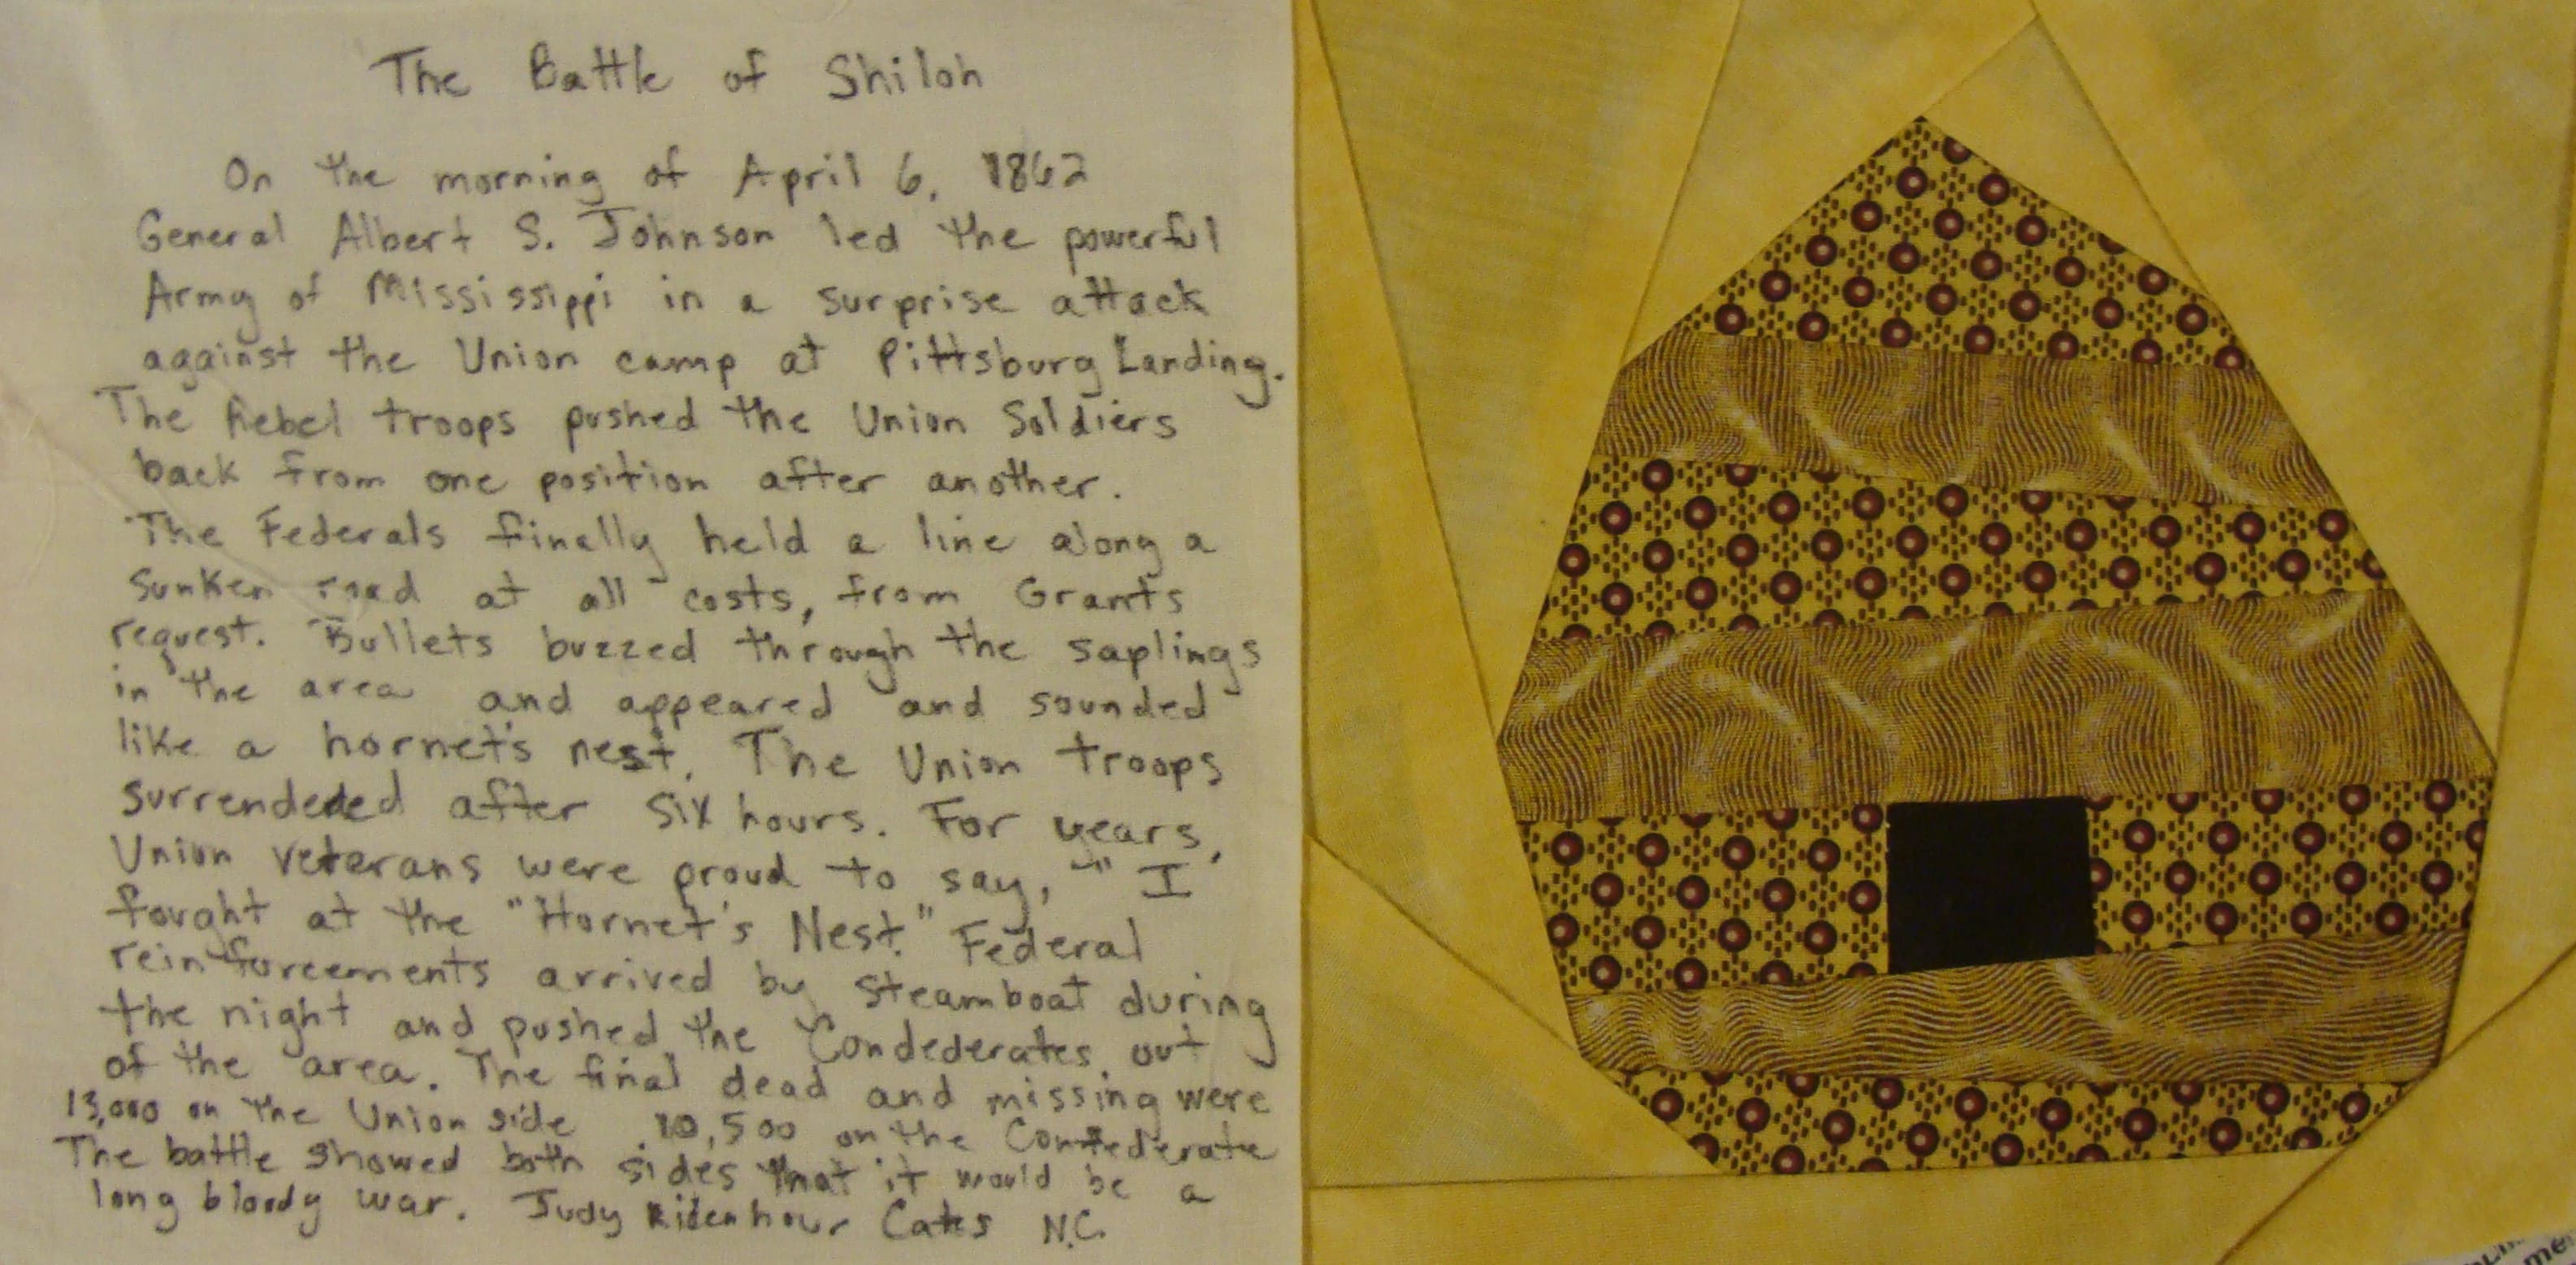 The Battle of Shiloh
On the morning of April 6, 1862
General Albert S. Johnson led the powerful
Army of Mississippi in a surprise attack
against the Union camp at Pittsburg Landing.
The Rebel troops pushed the Union Soldiers
back from one position after another.
The Federals finally held a line along a
Sunken road at all costs, from Grants
request. Bullets buzzed through the saplings
in the area and appeared and sounded
like a hornet's nest. The Union troops
surrendeded after six hours. For years,
Union veterans were proud to say, " I
fought at the "Hornet's Nest." Federal
reinforcements arrived by steamboat during
the night and pushed the Condederates out
of the area. The final dead and missing were
13,000 on the Union side 10,500 on the Confederate
The battle showed both sides that it would be a
long bloody war. Judy Ridenhour Cates N.C.